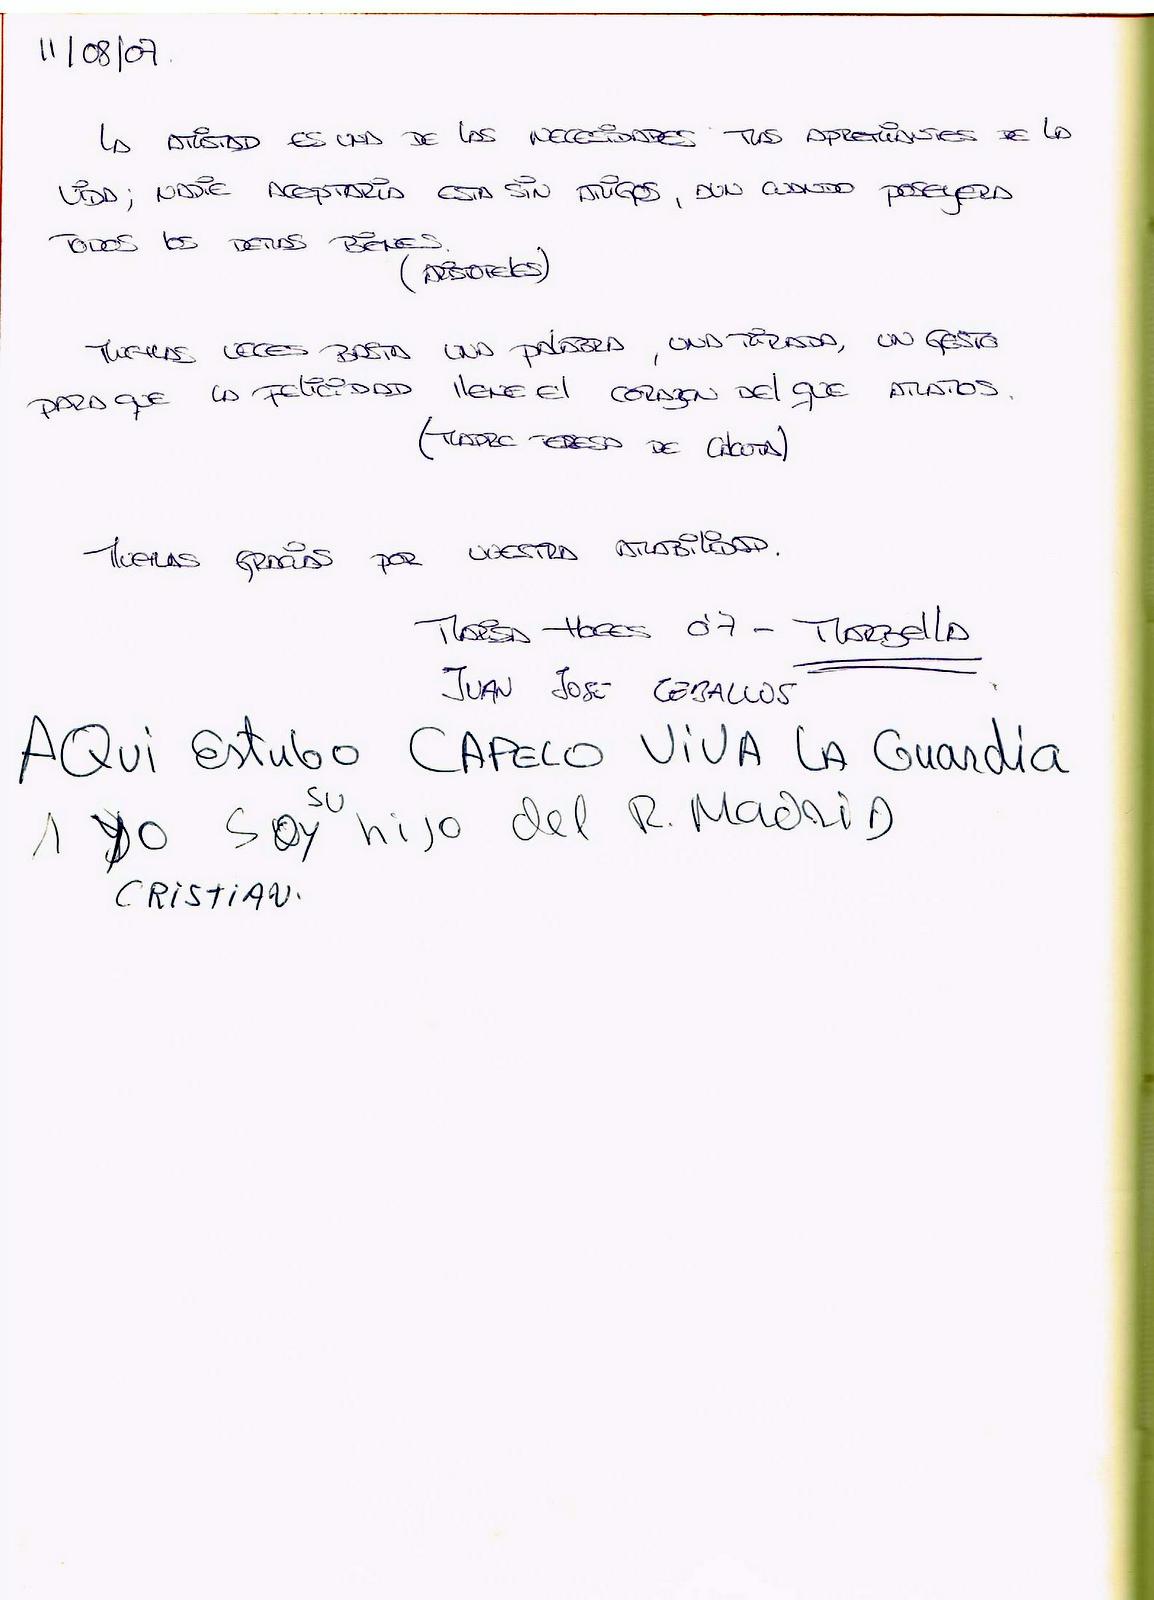 11/08/07.
LA AMISTAD ES UNA DE LAS NECESIDADES MAS APREMIANTES DE LA
VIDA; NADIE ACEPTARIA ESTA SIN AMIGOS, AUN CUANDO POSEYERA
TODOS LOS DEMAS BIENES.
(ARISTOTELES)
MUCHAS VECES BASTA UNA PALABRA, UNA MIRADA, UN GESTO
PARA QUE LA FELICIDAD llENE El CORAZON DEl QUE AMAMOS.
(MADRE TERESA DE CALCUTA)
MUCHAS GRACIAS POR VUESTRA AMABILIDAD.
MARISA HOCES 07 - MARBELLA
JUAN JOSE CEBALLOS
AQui Estubo CAPELO ViVA LA Guardia
1 yo Soy su hijo del R. MadRiD
CRiSTiAN.